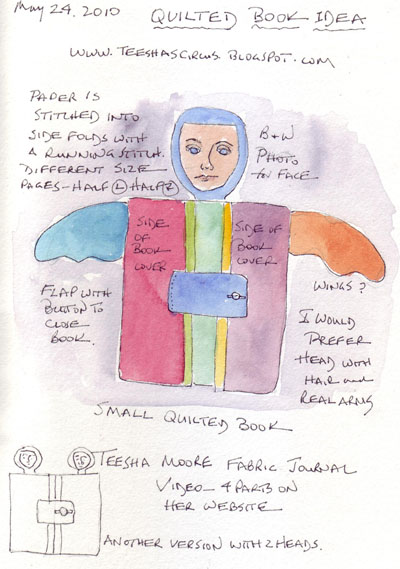 May 24, 2010
QUILTED BOOK IDEA
WWW.TEESHASCIRCUS.BLOGSPOT.COM
PAPER IS
STITCHED INTO
SIDE FOLDS WITH
A RUNNING STITCH.
DIFFERENT SIZE
PAGES-HALF L HALF
B+W
PHOTO
FOR FACE
SIDE
OF
BOOK
COVER
SIDE OF
BOOK
COVER
FLAP WITH
BUTTON TO
CLOSE
BOOK.
WINGS?
I WOULD
PREFER
HEAD WITH
HAIR and
REAL ARMS
SMALL QUILTED BOOK
TEESHA MOORE FABRIC JOURNAL
VIDEO - 4 PARTS ON
HER WEBSITE
ANOTHER VERSION WITH 2 HEADS.